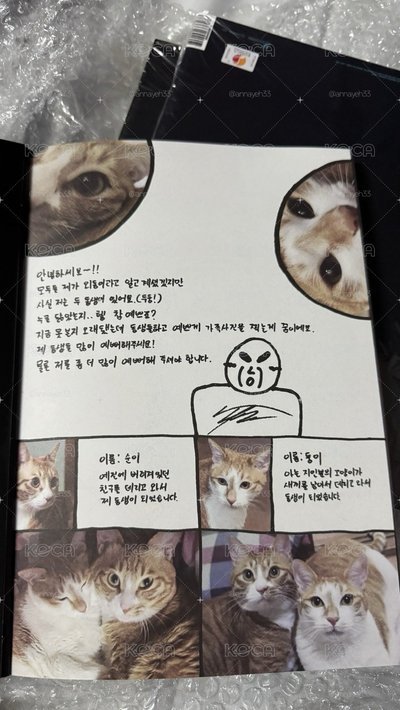 안녕하세요~!!
모두들 제가 외동이라고 알고 계셨겠지만
사실 저는 두 동생이 있어요.(두둥!)
누굴 닮았는지.. 헿 참 예쁘죠?
지금 못본지 오래됐는데 동생들하고 예쁘게 가족사진을 찍는게 꿈이에요.
제 동생들 많이 예뻐해주세요!
물론 저를 좀 더 많이 예뻐해 주셔야 합니다.
이름: 순이
예전에 버려져 있던
친구를 데리고 와서
제 동생이 되었습니다.
이름: 둥이
아는 지인분의 고양이가
새끼를 낳아서 데리고 와서
동생이 되었습니다
KOCA
@annayeh33